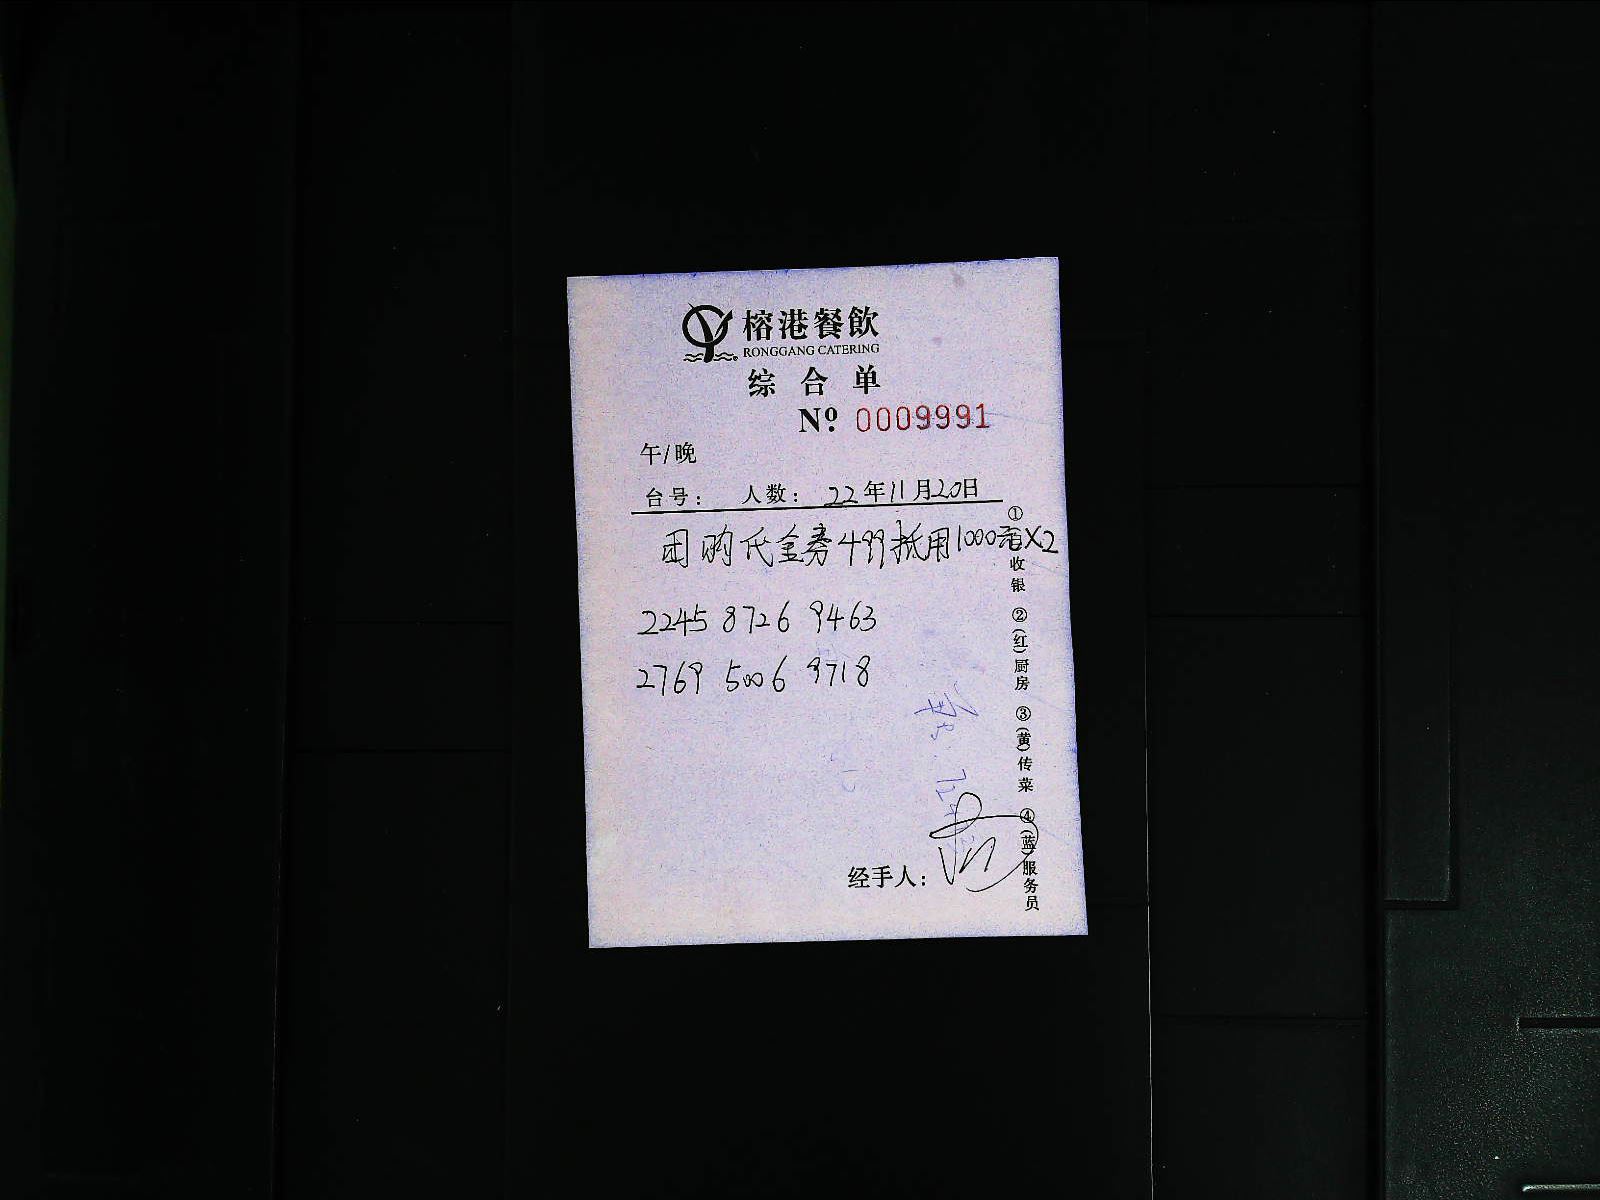 榕港餐飲
RONGGANG CATERING
综合单
Nº: 0009991
午/晚
台号: 人数: 22年11月20日
团购代金券499抵用1000元X2
2245 8726 9463
2769 5006 9718
经手人:
①收银 ②(红)厨房 ③(黄)传菜 ④(蓝)服务员